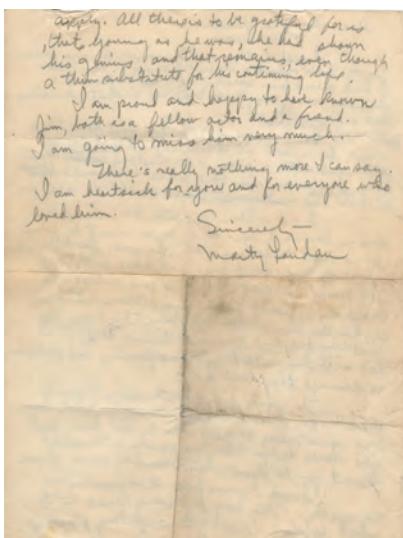 . All there is to be grateful for is
, that, young as he was, he had shown
his genius and that remains, even though
a thin substitute for his continuing life.
I am proud and happy to have known
Jim, both as a fellow actor and a friend.
I am going to miss him very much.
There's really nothing more I can say.
I am heartsick for you and for everyone who
loved him.
Sincerely
Marty Landau